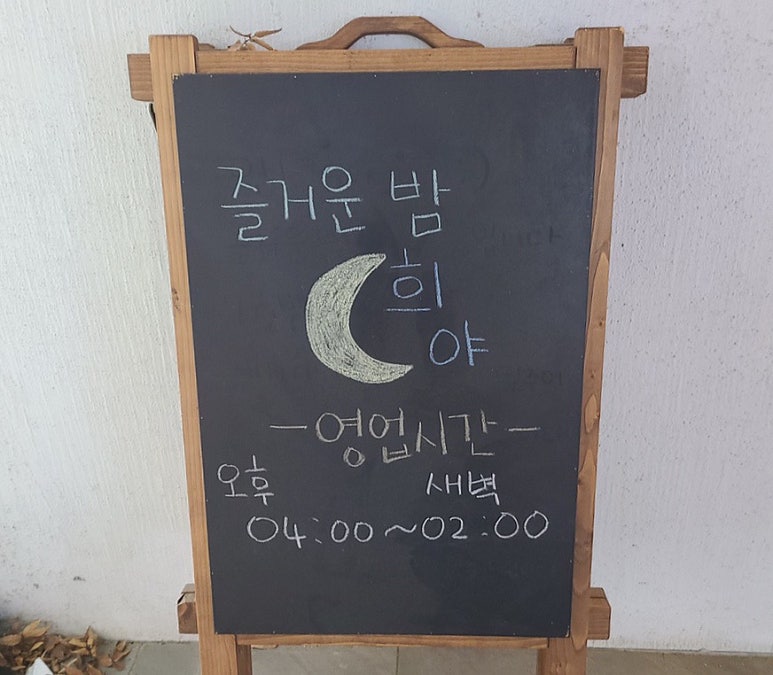 즐거운 밤
희
야
-영업시간-
오후 새벽
04:00~02:00